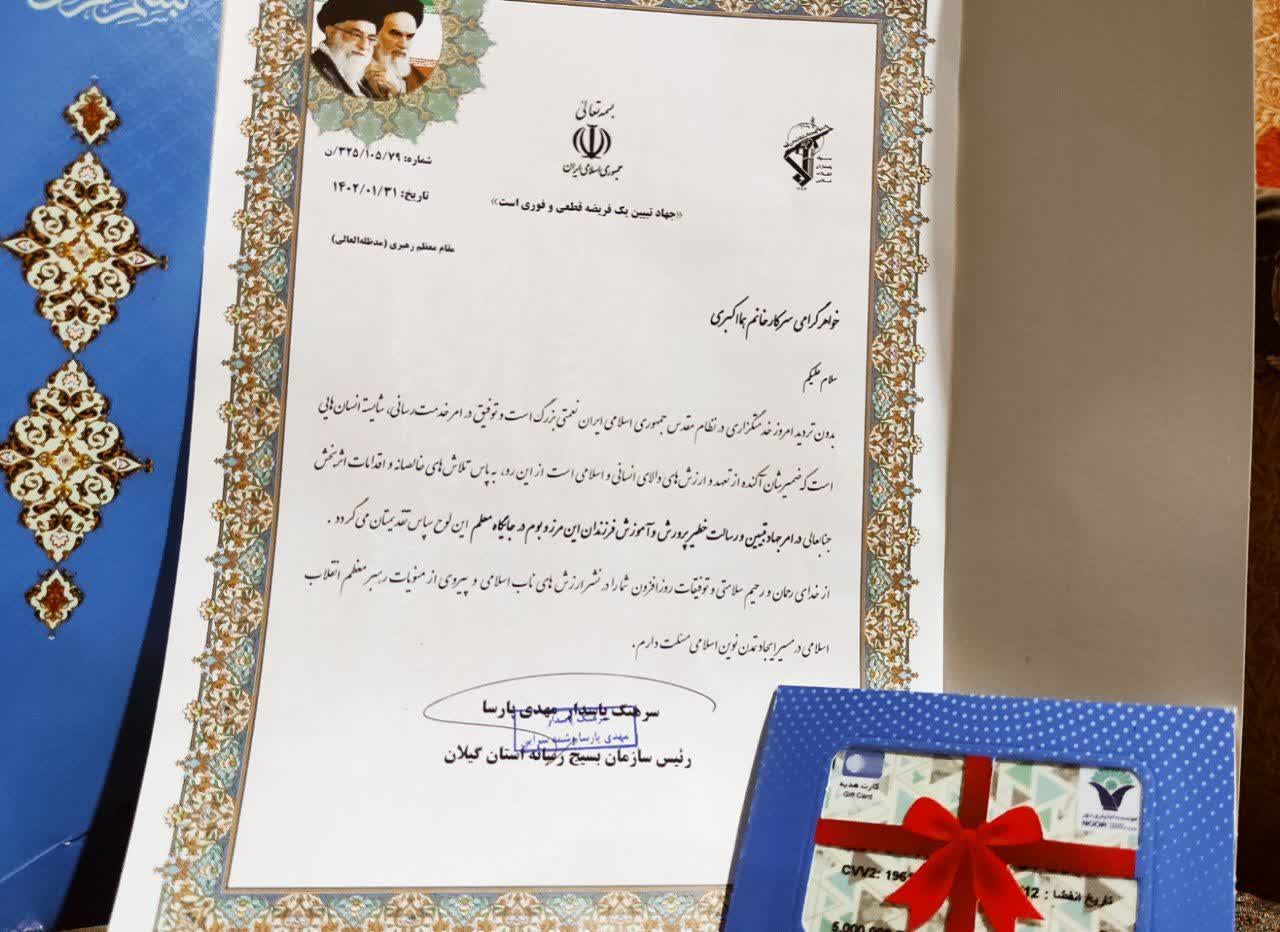 بسمه تعالی
جمهوری اسلامی ایران
شماره: ۳۲۵/۱۰۵/۷۹/ن
تاریخ: ۱۴۰۲/۰۱/۳۱
«جهاد تبیین یک فریضه قطعی و فوری است»
مقام معظم رهبری (مدظله‌العالی)
خواهر گرامی سرکار خانم هما اکبری
سلام علیکم
بدون تردید امروز خدمتگزاری در نظام مقدس جمهوری اسلامی ایران نعمتی بزرگ است و توفیق در امر خدمت‌رسانی، شایسته انسان‌هایی
است که ضمیرشان آکنده از تعهد و ارزش‌های والای انسانی و اسلامی است از این رو، به پاس تلاش‌های خالصانه و اقدامات اثربخش
جنابعالی در امر جهاد تبیین و رسالت خطیر پرورش و آموزش فرزندان این مرز و بوم در جایگاه معلم این لوح سپاس تقدیمتان می گردد.
از خدای رحمان و رحیم سلامتی و توفیقات روزافزون شما را در نشر ارزش های ناب اسلامی و پیروی از منویات رهبر معظم انقلاب
اسلامی در مسیر ایجاد تمدن نوین اسلامی مسئلت دارم.
سرهنگ پاسدار مهدی پارسا
سرهنگ پاسدار
رئیس سازمان بسیج رسانه استان گیلان
کارت هدیه
Gift Card
NOOR
CVV2: 196
تاریخ انقضا : 12/